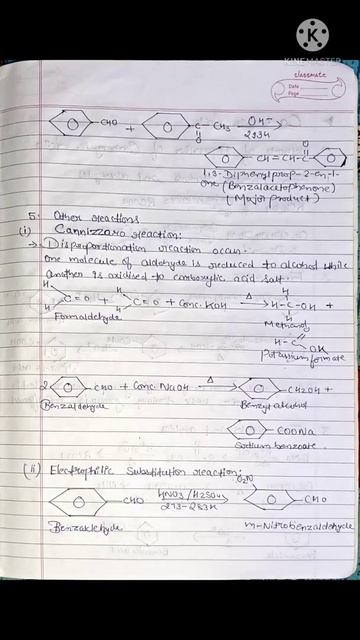 K
KINEMASTER
classmate
Date
Page
CHO + C CH3 OH-
O 293K
O
CH = CH - C
1,3-Diphenylprop-2-en-1-
one (Benzalacetophenone)
(Major product)
5. Other reactions
(i) Cannizzaro reaction:
→ Disproportionation reaction occur.
One molecule of aldehyde is reduced to alcohol while
another is oxidised to carboxylic acid salt.
H H H
C=O + C=O + Conc. KOH Δ → H-C-OH +
H H H
Formaldehyde Methanol
H-C O
OK
Potassium formate
2 CHO + Conc. NaOH Δ → CH2OH +
Benzaldehyde Benzyl alcohol
COONa
Sodium benzoate.
(ii) Electrophilic Substitution reaction:
O2N
CHO HNO3/H2SO4 → CHO
273-283K
Benzaldehyde m-Nitrobenzaldehyde